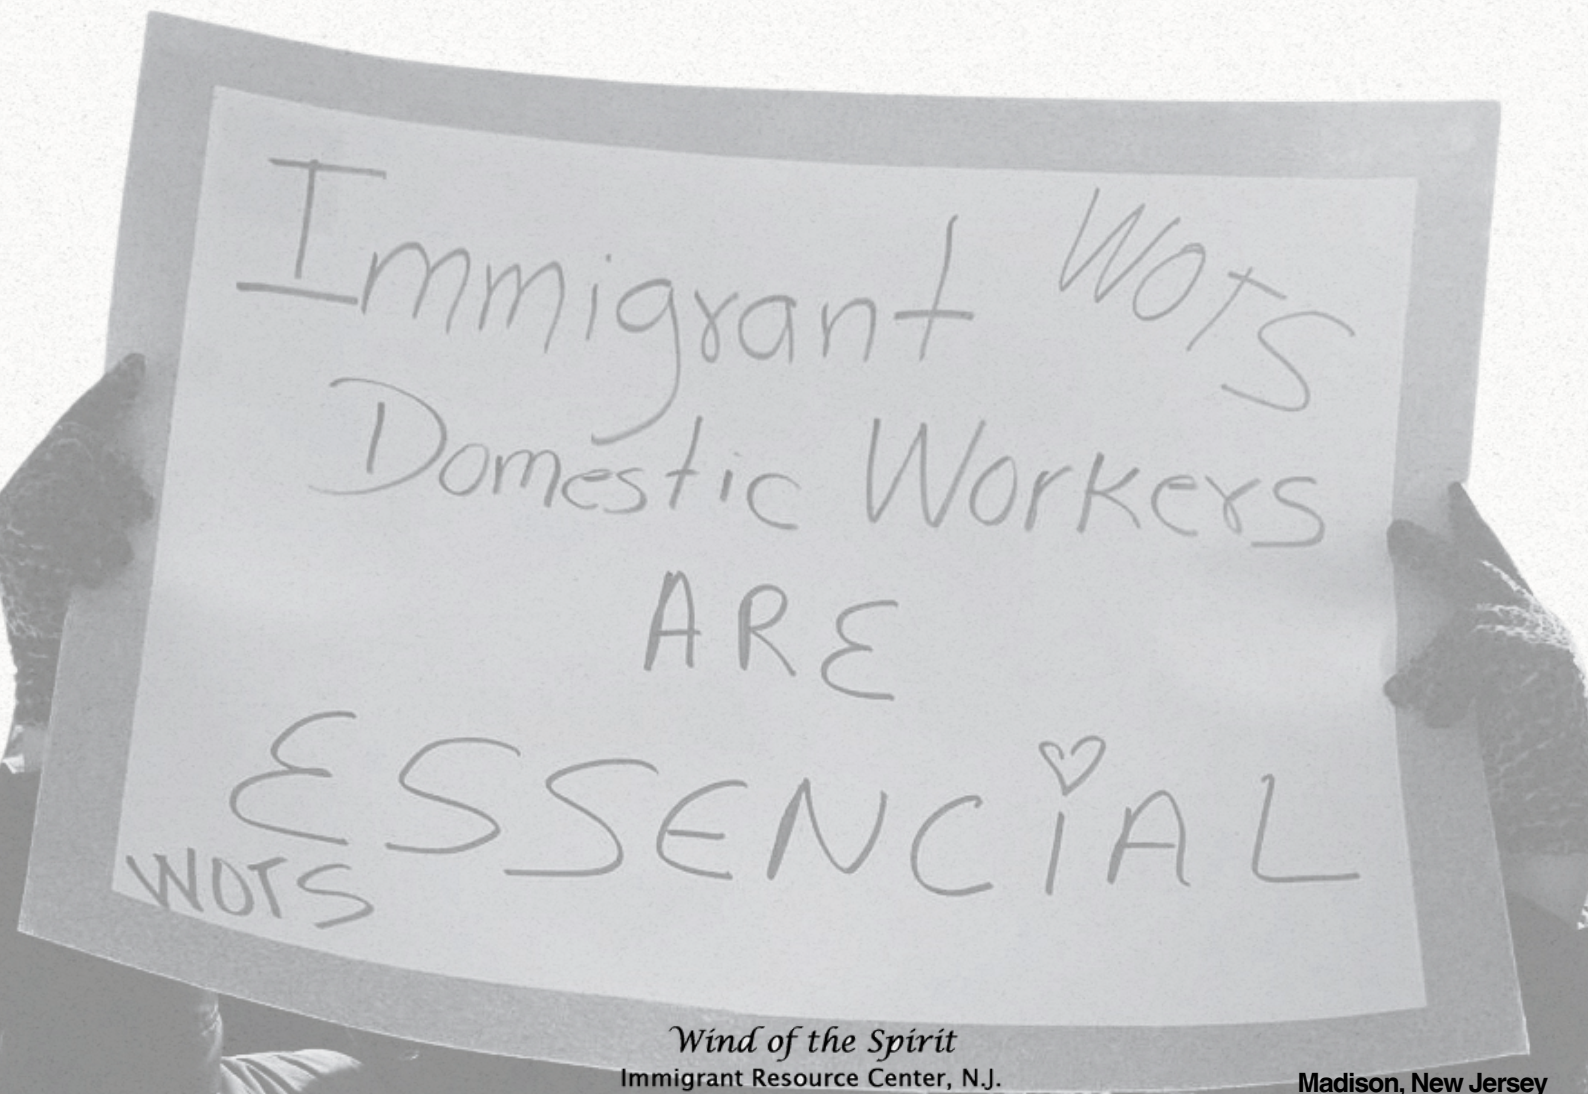 Immigrant WOTS
Domestic Workers
ARE
ESSENCiAL
WOTS
Wind of the Spirit
Immigrant Resource Center, N.J.
Madison, New Jersey